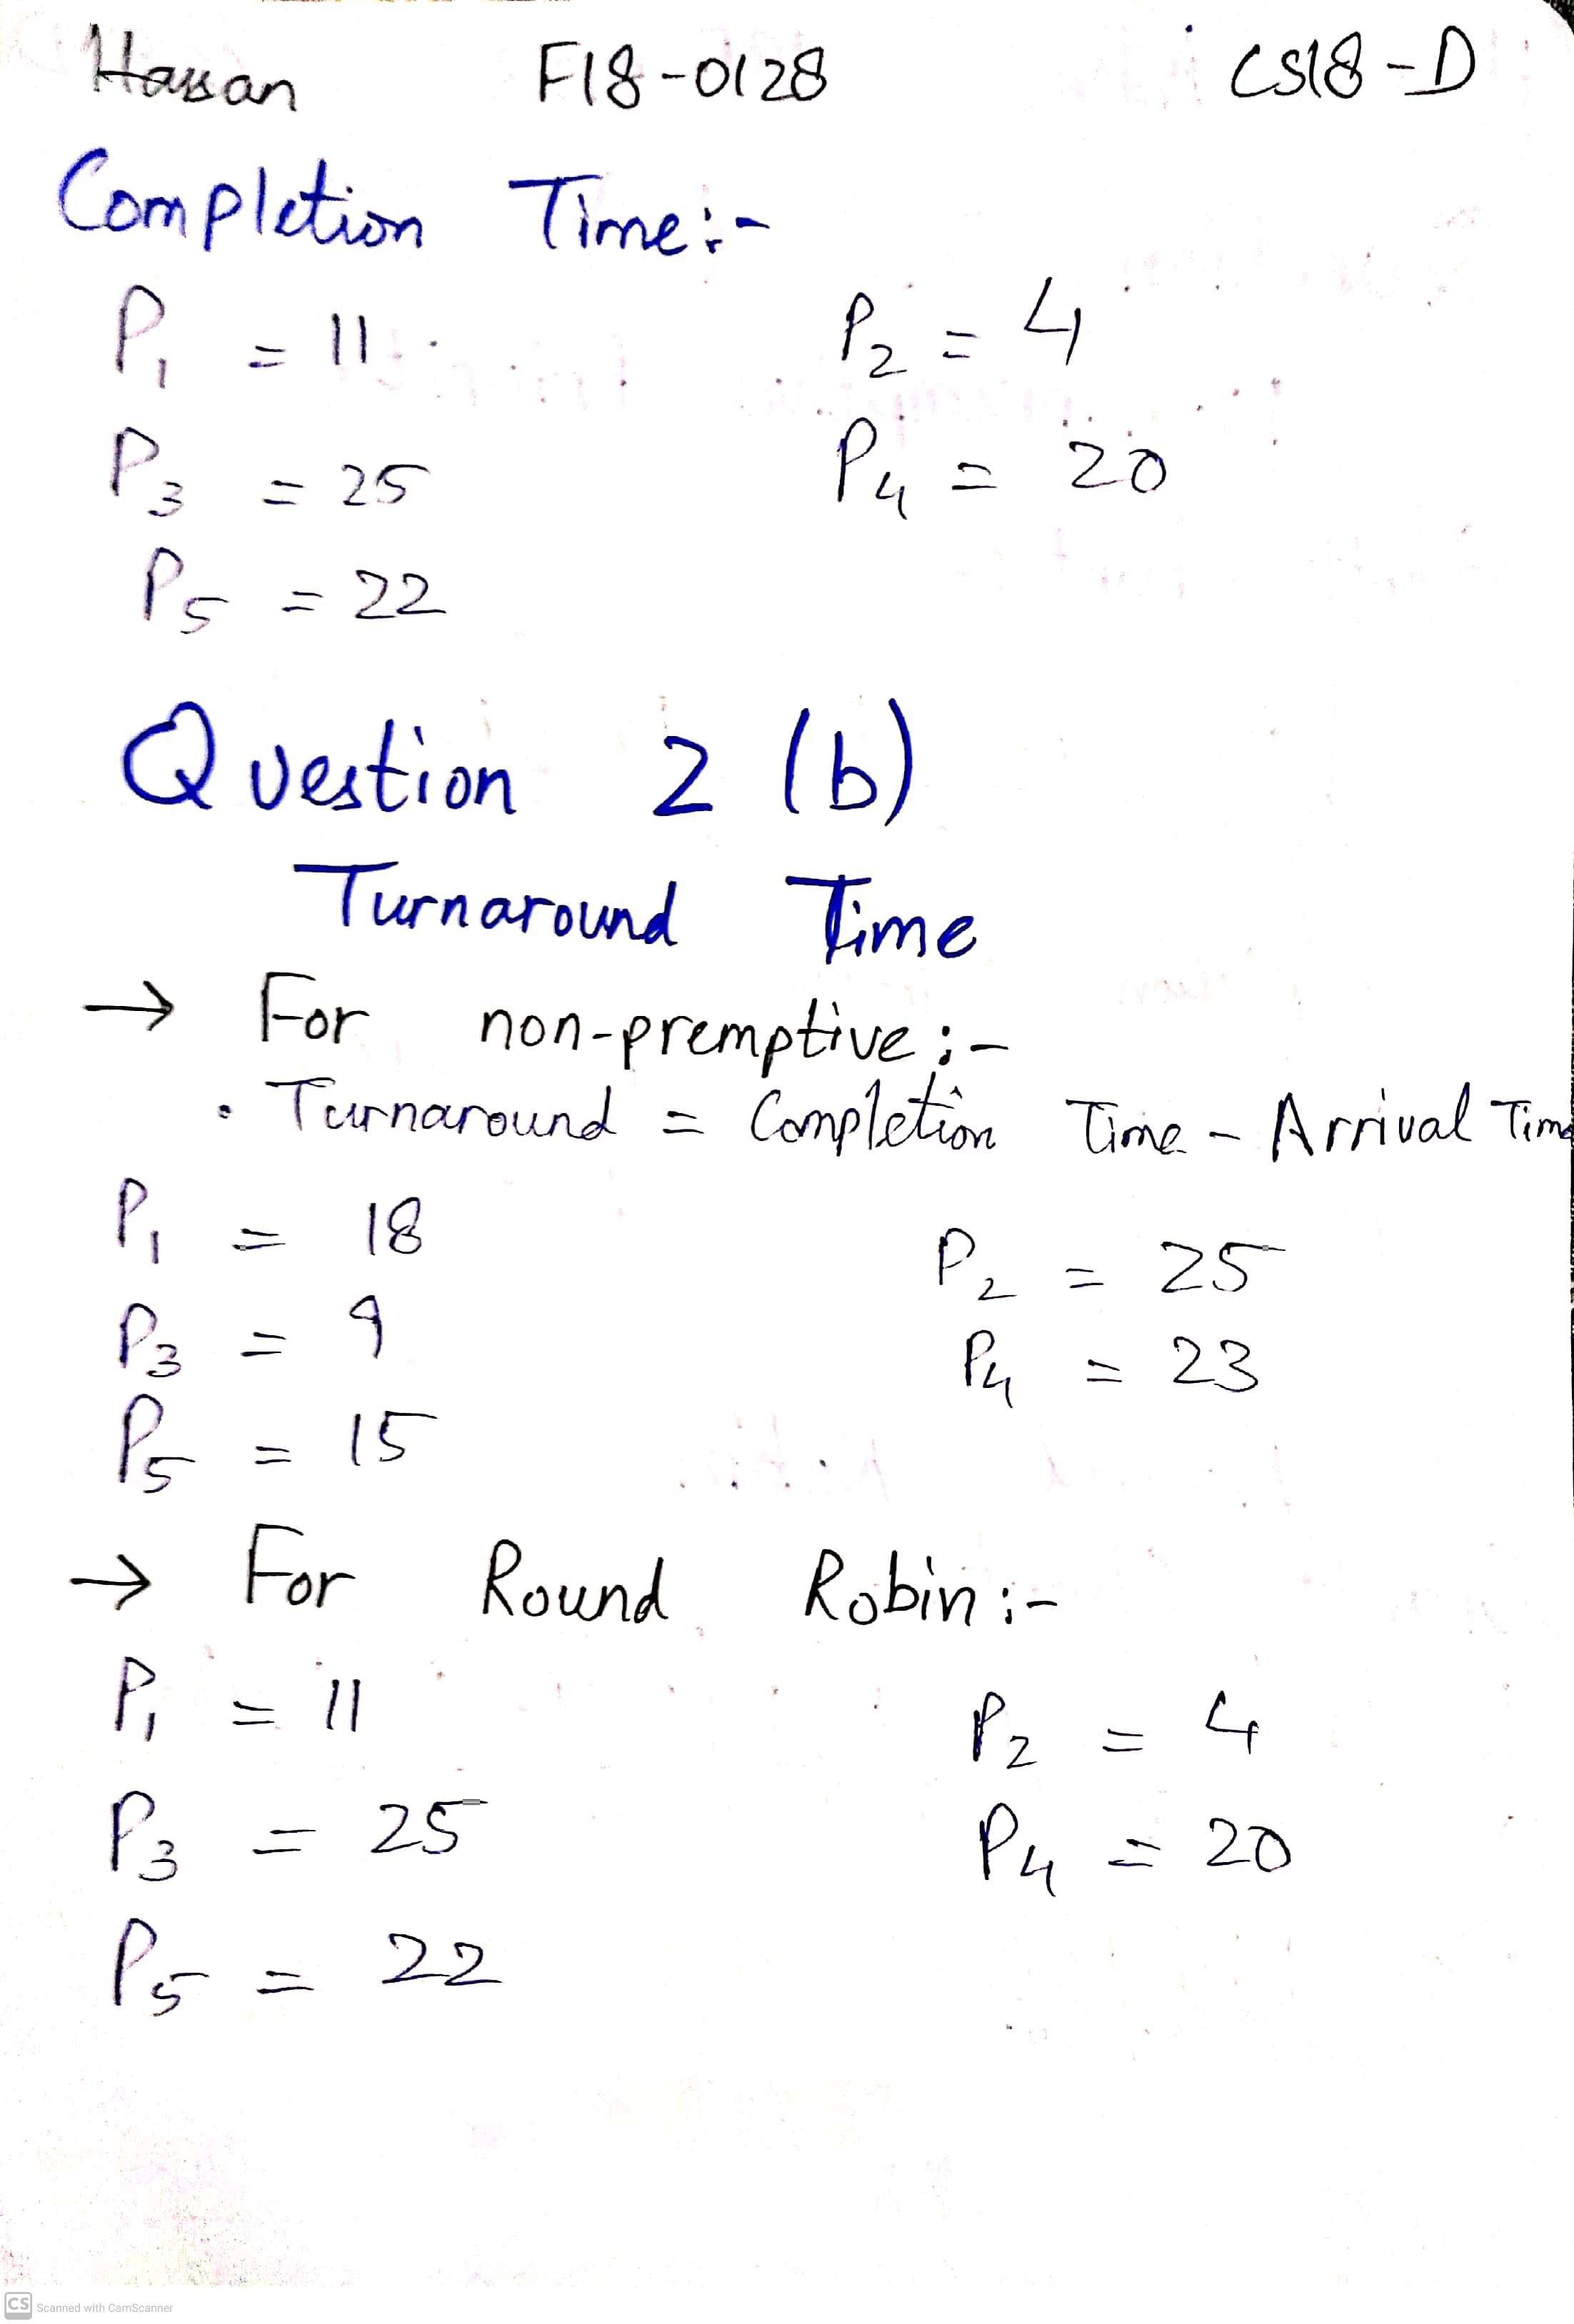 Hassan F18-0128 CS18-D
Completion Time:-
P1 = 11 P2 = 4
P3 = 25 P4 = 20
P5 = 22
Question 2 (b)
Turnaround Time
→ For non-premptive:-
• Turnaround = Completion Time - Arrival Time
P1 = 18 P2 = 25
P3 = 9 P4 = 23
P5 = 15
→ For Round Robin:-
P1 = 11 P2 = 4
P3 = 25 P4 = 20
P5 = 22
CS Scanned with CamScanner